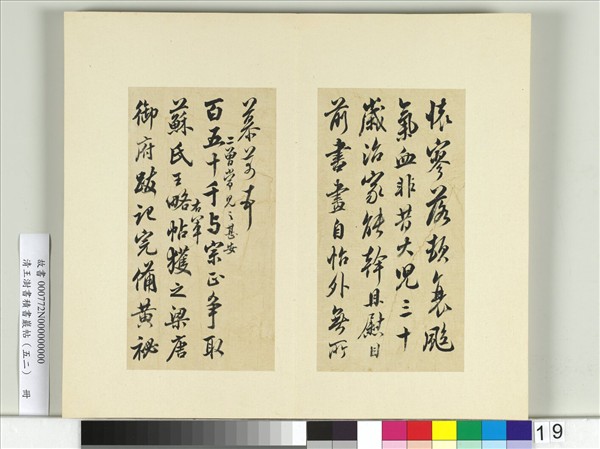 懷寥落頓衰颯
氣血非昔大兒三十
歲治家能幹且慰目
前書畫自怡外無所
慕芾
二曾常見之甚安
百五十千与宗正争取
蘇氏王略帖獲之梁唐
右軍
御府跋記完備黃祕
故書 000772N000000000
清王澍書積書巖帖(五二) 冊
19